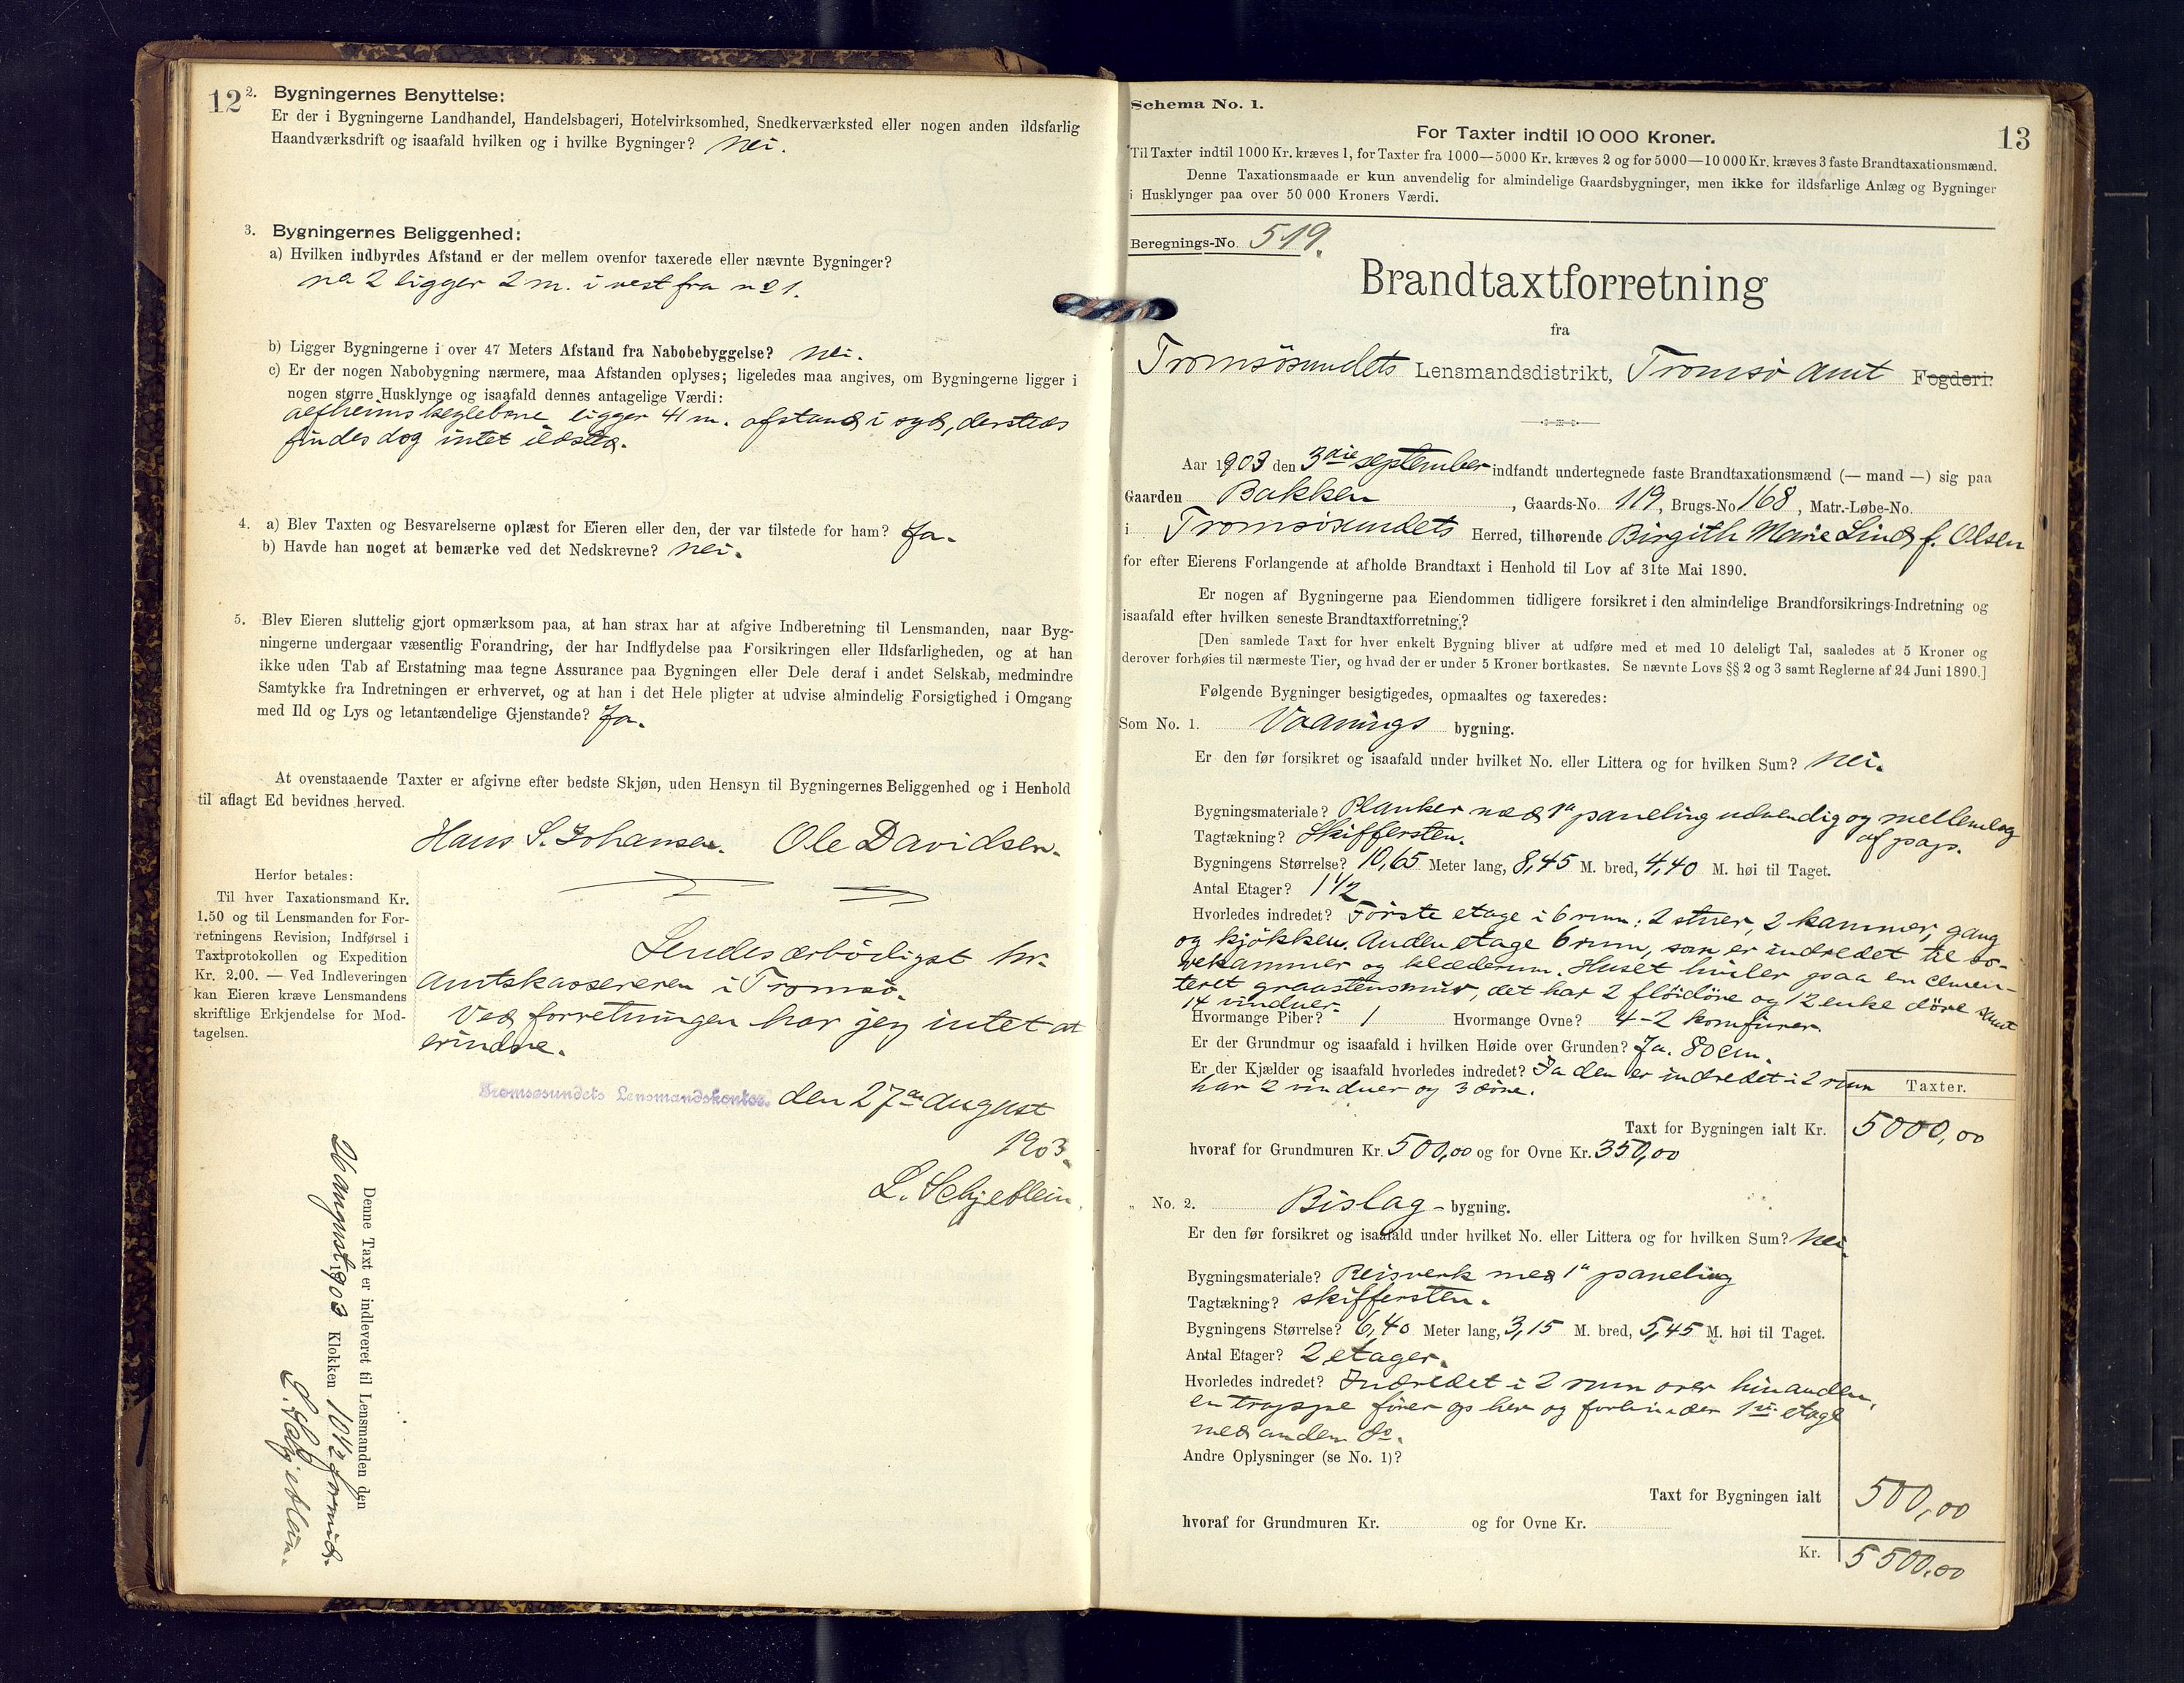 12
2. Bygningernes Benyttelse:
Er der i Bygningerne Landhandel, Handelsbageri, Hotelvirksomhed, Snedkerværksted eller nogen anden ildsfarlig
Haandværksdrift og isaafald hvilken og i hvilke Bygninger? Nei.
3. Bygningernes Beliggenhed:
a) Hvilken indbyrdes Afstand er der mellem ovenfor taxerede eller nævnte Bygninger?
no 2 ligger 2 m. i vest fra no 1.
b) Ligger Bygningerne i over 47 Meters Afstand fra Nabobebyggelse? Nei.
c) Er der nogen Nabobygning nærmere, maa Afstanden oplyses; ligeledes maa angives, om Bygningerne ligger i
nogen større Husklynge og isaafald dennes antagelige Værdi:
alfheims keglebane ligger 41 m. afstand i syd, dersteds
findes dog intet ildsted.
4. a) Blev Taxten og Besvarelserne oplæst for Eieren eller den, der var tilstede for ham? Ja.
b) Havde han noget at bemærke ved det Nedskrevne? Nei.
5. Blev Eieren sluttelig gjort opmærksom paa, at han strax har at afgive Indberetning til Lensmanden, naar Byg-
ningerne undergaar væsentlig Forandring, der har Indflydelse paa Forsikringen eller Ildsfarligheden, og at han
ikke uden Tab af Erstatning maa tegne Assurance paa Bygningen eller Dele deraf i andet Selskab, medmindre
Samtykke fra Indretningen er erhvervet, og at han i det Hele pligter at udvise almindelig Forsigtighed i Omgang
med Ild og Lys og letantændelige Gjenstande? Ja.
At ovenstaaende Taxter er afgivne efter bedste Skjøn, uden Hensyn til Bygningernes Beliggenhed og i Henhold
til aflagt Ed bevidnes herved.
Hans S. Johansen. Ole Davidsen.
Herfor betales:
Til hver Taxationsmand Kr.
1.50 og til Lensmanden for For-
retningens Revision, Indførsel i
Taxtprotokollen og Expedition
Kr. 2.00. — Ved Indleveringen
kan Eieren kræve Lensmandens
skriftlige Erkjendelse for Mod-
tagelsen.
Sendes ærbödigst hr.
Amtskassereren i Tromsö.
Ved forretningen har jeg intet at
erindre.
Tromsøsundets Lensmandskontor. den 27de august
1903.
L. Schjeblein.
Denne Taxt er indleveret til Lensmanden den
26 august 1903 Klokken 10½ formid.
L. Schjeblein.
Schema No. 1.
13
For Taxter indtil 10 000 Kroner.
Til Taxter indtil 1000 Kr. kræves 1, for Taxter fra 1000—5000 Kr. kræves 2 og for 5000—10 000 Kr. kræves 3 faste Brandtaxationsmænd.
Denne Taxationsmaade er kun anvendelig for almindelige Gaardsbygninger, men ikke for ildsfarlige Anlæg og Bygninger
i Husklynger paa over 50 000 Kroners Værdi.
Beregnings-No. 519.
Brandtaxtforretning
fra
Tromsösundets Lensmandsdistrikt, Tromsö Amt Fogderi.
Aar 1903 den 3die september indfandt undertegnede faste Brandtaxationsmænd (— mand —) sig paa
Gaarden Bakken, Gaards-No. 119, Brugs-No 168, Matr.-Løbe-No.
i Tromsösundets Herred, tilhørende Birgith Marie Lind f. Olsen
for efter Eierens Forlangende at afholde Brandtaxt i Henhold til Lov af 31te Mai 1890.
Er nogen af Bygningerne paa Eiendommen tidligere forsikret i den almindelige Brandforsikrings-Indretning og
isaafald efter hvilken seneste Brandtaxtforretning?
[Den samlede Taxt for hver enkelt Bygning bliver at udføre med et med 10 deleligt Tal, saaledes at 5 Kroner og
derover forhøies til nærmeste Tier, og hvad der er under 5 Kroner bortkastes. Se nævnte Lovs §§ 2 og 3 samt Reglerne af 24 Juni 1890.]
Følgende Bygninger besigtigedes, opmaaltes og taxeredes:
Som No. 1. Vaanings bygning.
Er den før forsikret og isaafald under hvilket No. eller Littera og for hvilken Sum? Nei.
Bygningsmateriale? Planker med 1" paneling udvendig og mellemlag
af pap.
Tagtækning? Skiffersten.
Bygningens Størrelse? 10,65 Meter lang, 8,45 M. bred, 4,40 M. høi til Taget.
Antal Etager? 1 ½
Hvorledes indredet? Förste etage i 6 rum: 2 stuer, 2 kammer, gang
og kjökken. Anden etage 6 rum, som er indredet til so-
vekammer og klæderum. Huset hviler paa en cimen-
teret graastensmur, det har 2 flöidöre og 12 enke döre samt
14 vinduer.
Hvormange Piber? 1 Hvormange Ovne? 4-2 komfürer
Er der Grundmur og isaafald i hvilken Høide over Grunden? Ja. 80 cm.
Er der Kjælder og isaafald hvorledes indredet? Ja den er indredet i 2 rum
har 2 vinduer og 3 döre.
Taxter.
Taxt for Bygningen ialt Kr. 5000,00
hvoraf for Grundmuren Kr. 500,00 og for Ovne Kr. 350,00
" No. 2. Bislag - bygning.
Er den før forsikret og isaafald under hvilket No. eller Littera og for hvilken Sum? Nei.
Bygningsmateriale? Reisverk med 1" paneling
Tagtækning? skiffersten.
Bygningens Størrelse? 6,40 Meter lang, 3,15 M. bred, 5,45 M. høi til Taget.
Antal Etager? 2 etager.
Hvorledes indredet? Indredet i 2 rum over hinanden,
en trappe förer op her og forbinder 1ste etage
med anden do.
Andre Oplysninger (se No. 1)?
Taxt for Bygningen ialt 500,00
hvoraf for Grundmuren Kr. og for Ovne Kr.
Kr. 5500,00